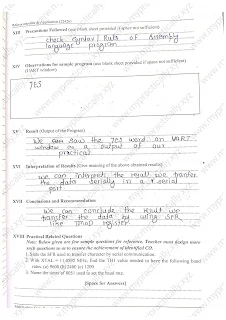 XIII Precautions Followed (use blank sheet provided if space not sufficient)
check syntax / Rule of Assembly
language program
XIV Observations for sample program (use blank sheet provided if space not sufficient)
(UART window).
YES
XV Result (Output of the Program)
We saw the YES word on UART
window as a output of our
practical
XVI Interpretation of Results (Give meaning of the above obtained results)
we can interpret the result we transfer
the data serially in a serial
port
XVII Conclusions and Recommendation
We can conclude the result we
transfer the data by using SFR
like TMOD register
XVIII Practical Related Questions
Note: Below given are few sample questions for reference. Teacher must design more
such questions so as to ensure the achievement of identified CO.
1. State the SFR used to transfer character by serial communication.
2. With XTAL = 11.0592 MHz, find the TH1 value needed to have the following baud
rates. (a) 9600 (b) 2400 (c) 1200
3. Name the timer of 8051 used to set the baud rate.
(Space for Answers)